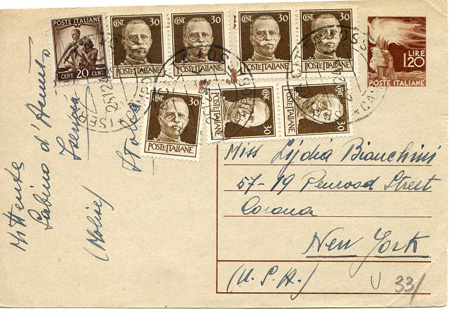 POSTE ITALIANE
CENT. 20 CENT.
CENT. 30
POSTE ITALIANE
CENT. 30
POSTE ITALIANE
CENT. 30
POSTE ITALIANE
CENT. 30
POSTE ITALIANE
LIRE
1.20
POSTE ITALIANE
CENT. 30
POSTE ITALIANE
30
POSTE ITALIANE
30
POSTE ITALIANE
Mittente
Sabino d'
Isernia
Italia
Miss Lydia Bianchini
57-19 Penrood Street
Corona
New York
(U.S.A.)
U 33/